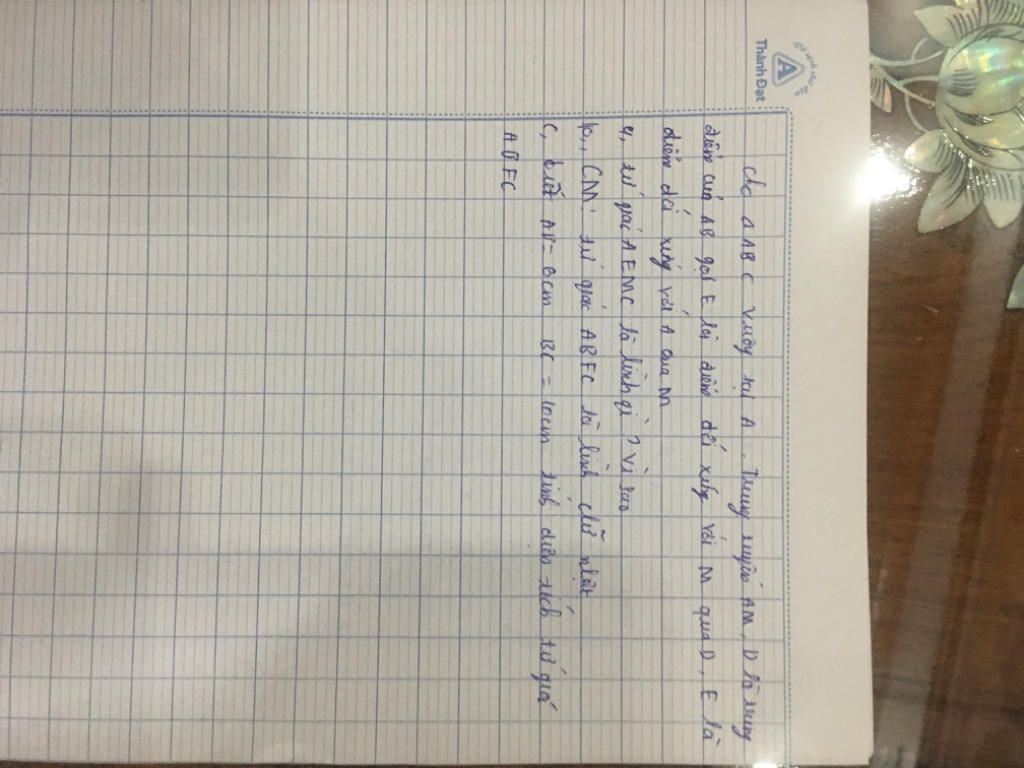 Thành Đạt
A
cho △ ABC vuông tại A. Trung tuyến AM, D là trung
điểm của AB gọi E là điểm đối xứng với M qua D, E là
điểm đối xứng với A qua M
a, tứ giác AEMC là hình gì ? vì sao
b, CM: tứ giác ABFC là hình chữ nhật
c, biết AB = 6cm BC = 10cm tính diện tích tứ giá
ABFC